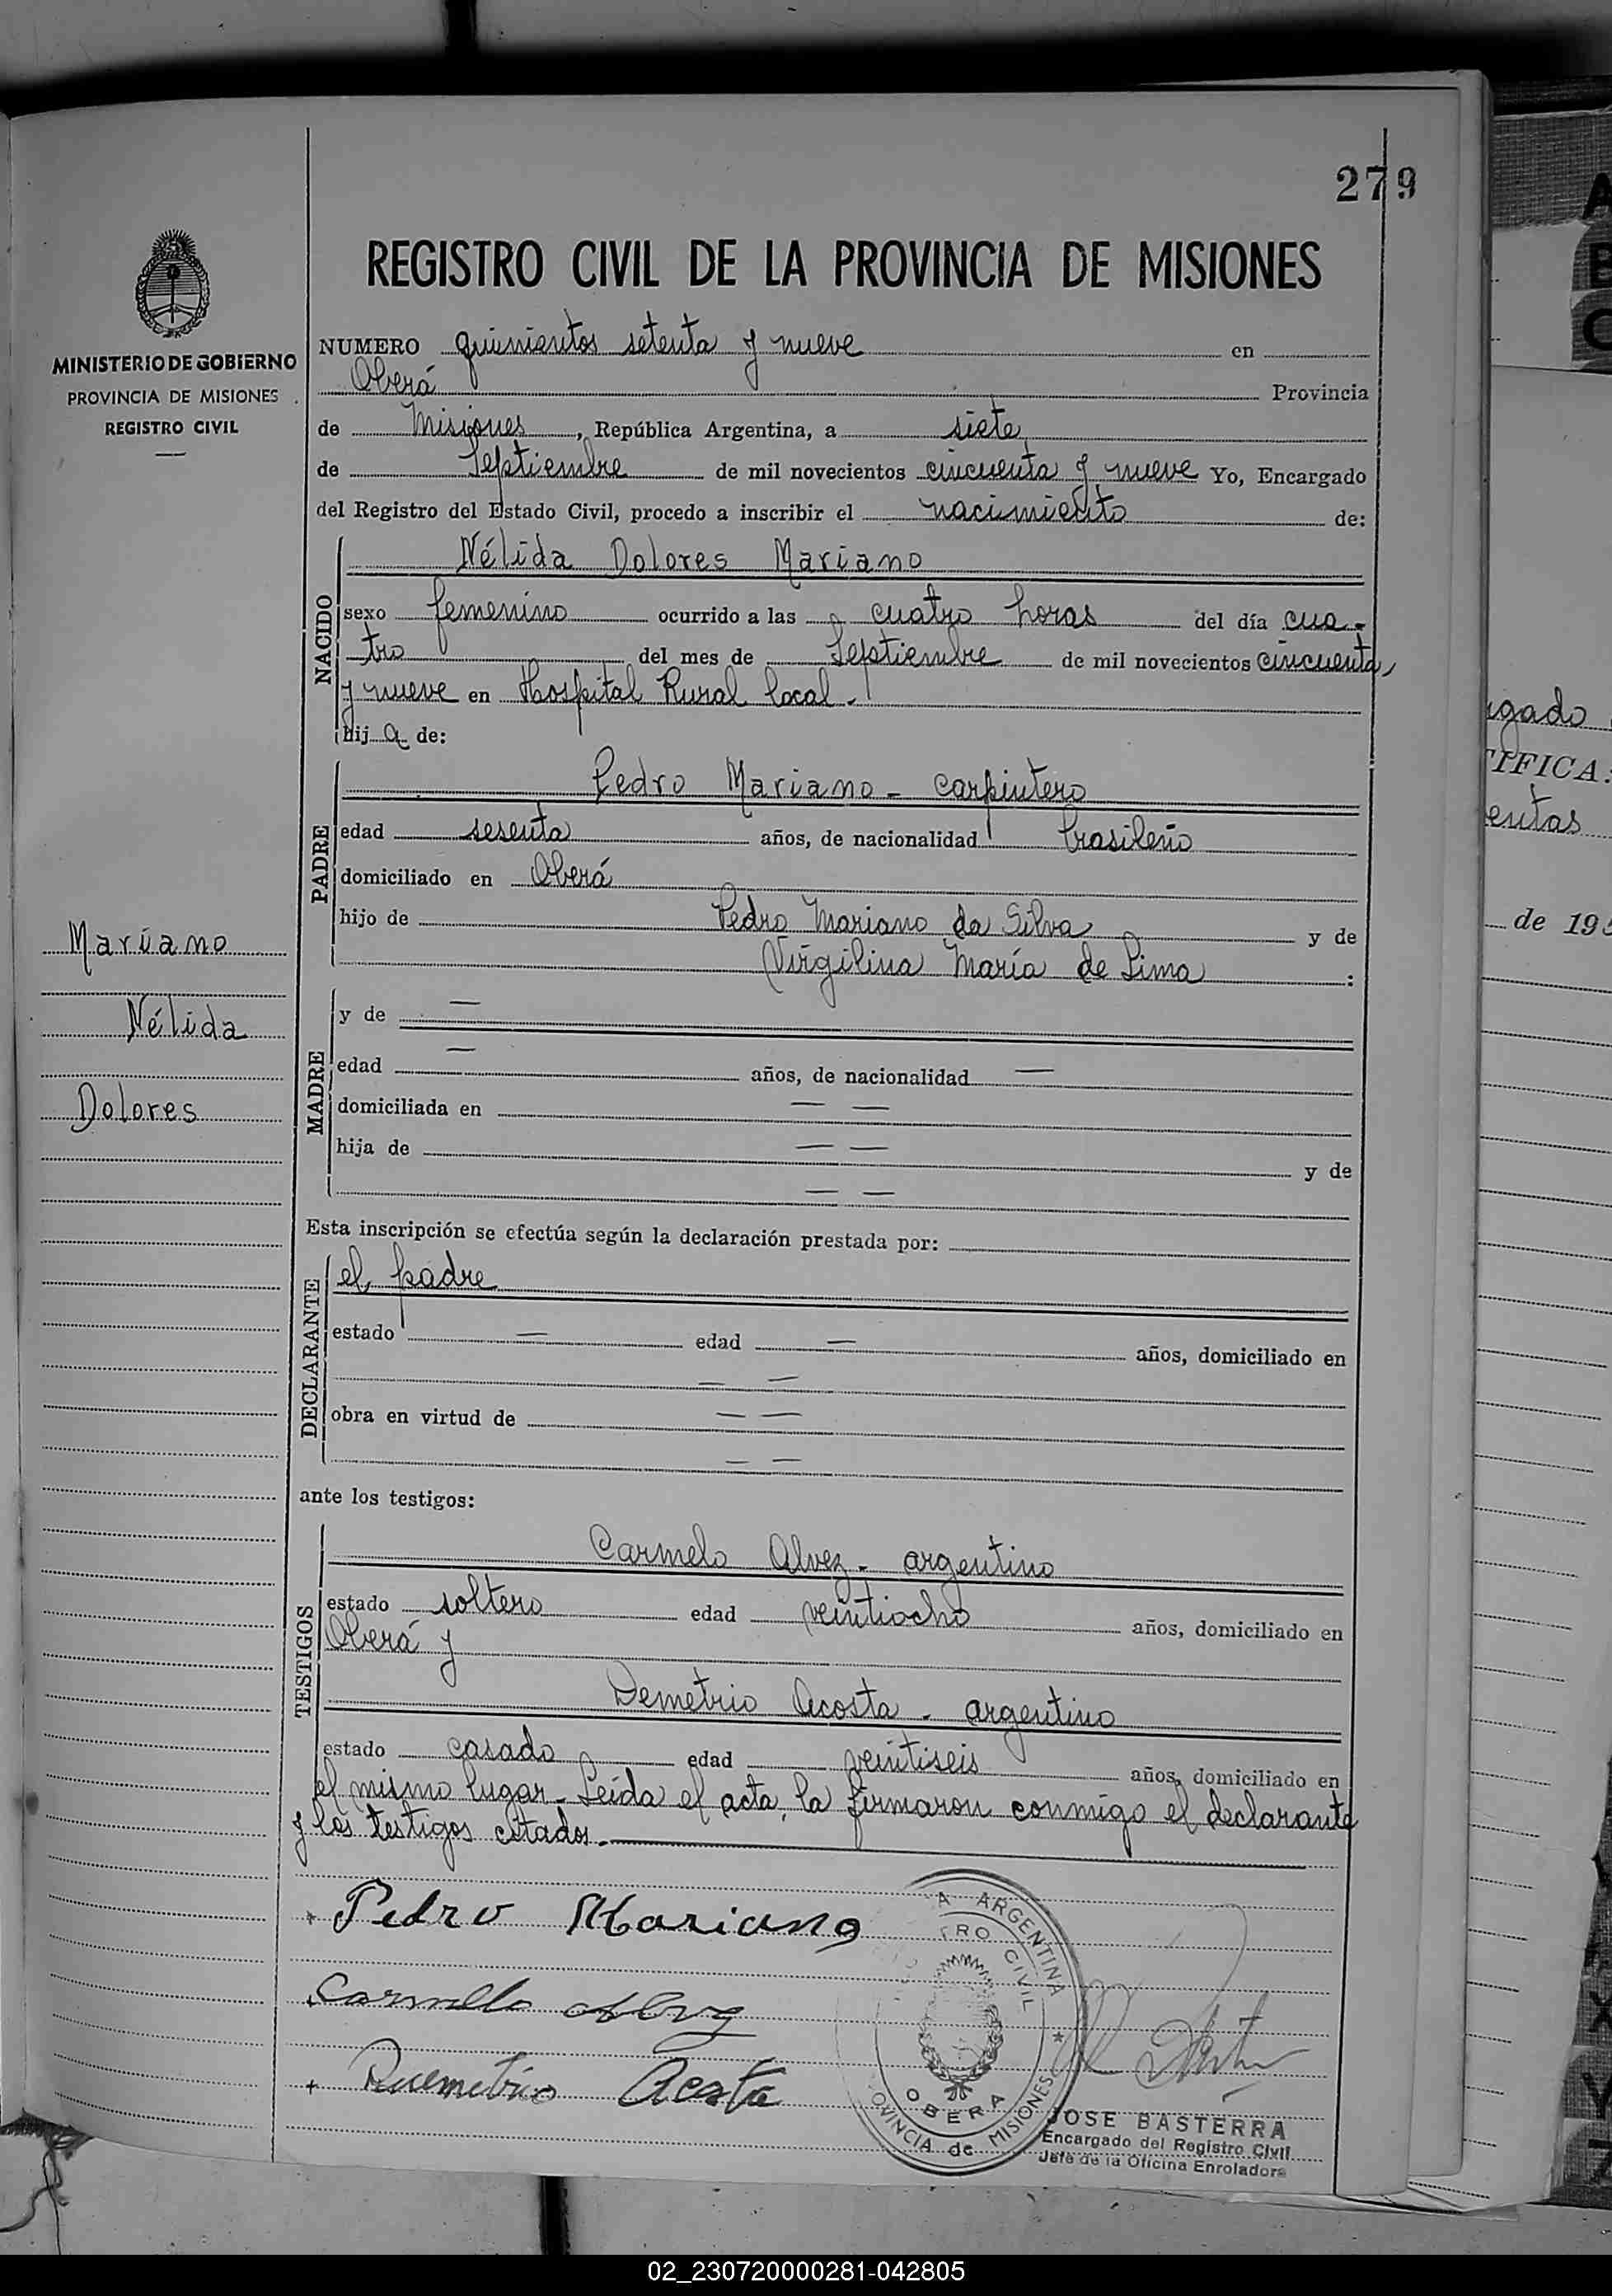 279
REGISTRO CIVIL DE LA PROVINCIA DE MISIONES
MINISTERIO DE GOBIERNO
PROVINCIA DE MISIONES
REGISTRO CIVIL
NUMERO quinientos setenta y nueve en
Oberá Provincia
de Misiones, República Argentina, a siete
de Septiembre de mil novecientos cincuenta y nueve Yo, Encargado
del Registro del Estado Civil, procedo a inscribir el nacimiento de:
NACIDO
Nélida Dolores Mariano
sexo femenino ocurrido a las cuatro horas del día cua-
tro del mes de Septiembre de mil novecientos cincuenta
y nueve en Hospital Rural local.
hij a de:
PADRE
Pedro Mariano - carpintero
edad sesenta años, de nacionalidad brasileño
domiciliado en Oberá
hijo de Pedro Mariano da Silva y de
Virgilina María de Lima :
Mariano
Nélida
Dolores
MADRE
y de —
edad — años, de nacionalidad —
domiciliada en — —
hija de — — y de
— —
Esta inscripción se efectúa según la declaración prestada por:
DECLARANTE
el padre
estado — edad — años, domiciliado en
— —
obra en virtud de — —
— —
ante los testigos:
TESTIGOS
Carmelo Alvez - argentino
estado soltero edad veintiocho años, domiciliado en
Oberá y
Demetrio Acosta - argentino
estado casado edad veintiseis años, domiciliado en
el mismo lugar - Leída el acta, la firmaron conmigo el declarante
y los testigos citados.
Pedro Mariano
Carmelo Alvez
Demetrio Acosta
A ARGENTINA
TRO CIVIL
OBERA
OVINCIA de MISIONES
JOSE BASTERRA
Encargado del Registro Civil
Jefe de la Oficina Enroladora
igado
TIFICA:
entas
de 195
A
B
C
X
Y
Z
02_230720000281-042805